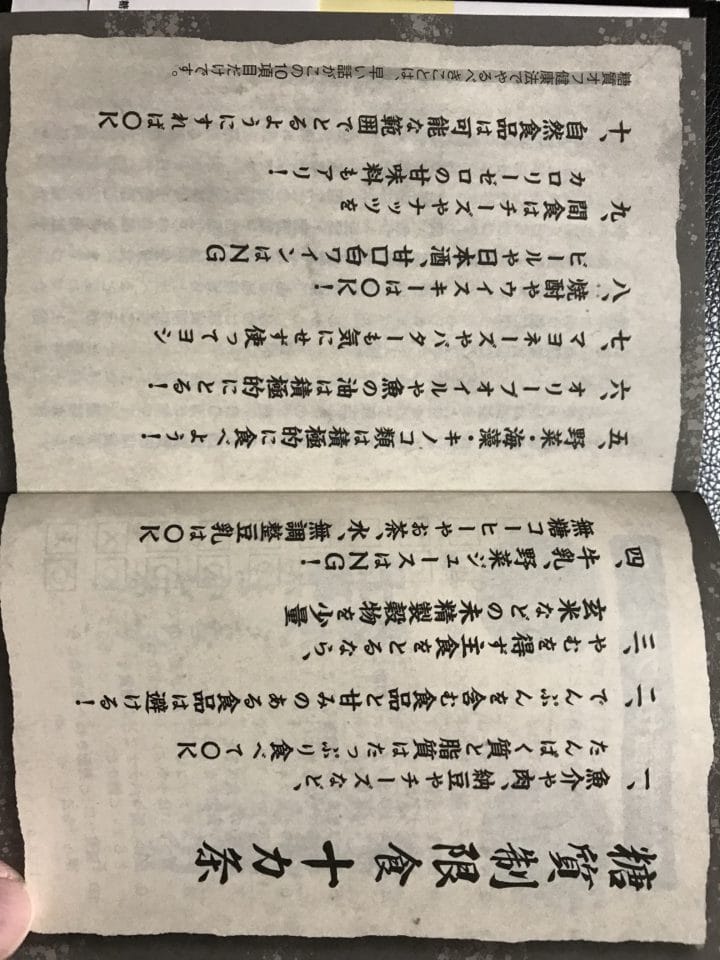 糖質制限食十カ条
一、魚介や肉、納豆やチーズなど、
たんぱく質と脂質はたっぷり食べてOK
二、でんぷんを含む食品と甘みのある食品は避ける!
三、やむを得ず主食をとるなら、
玄米などの未精製穀物を少量
四、牛乳、野菜ジュースはNG!
無糖コーヒーやお茶、水、無調整豆乳はOK
五、野菜・海藻・キノコ類は積極的に食べよう!
六、オリーブオイルや魚の油は積極的にとる!
七、マヨネーズやバターも気にせず使ってヨシ
八、焼酎やウィスキーはOK!
ビールや日本酒、甘口白ワインはNG
九、間食はチーズやナッツを
カロリーゼロの甘味料もアリ!
十、自然食品は可能な範囲でとるようにすればOK
糖質オフ健康法でやるべきことは、早い話がこの10項目だけです。